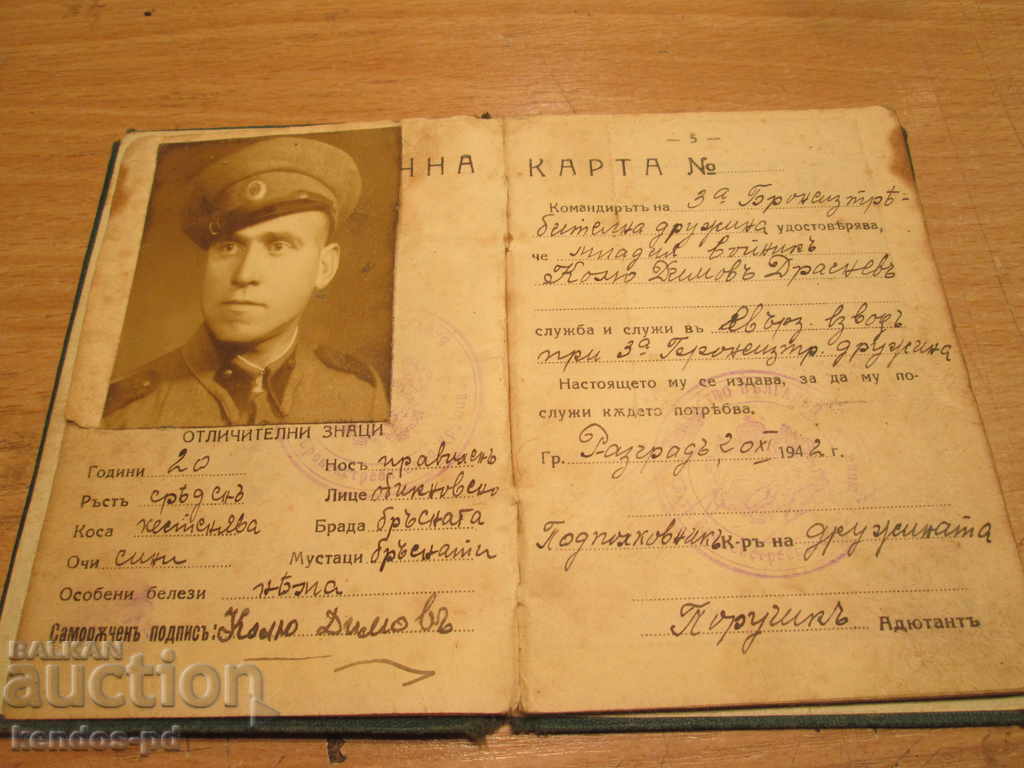 ЧНА КАРТА №
— 5 —
ОТЛИЧИТЕЛНИ ЗНАЦИ
Години 20
Носъ правиленъ
Ръстъ срѣденъ
Лице обикновено
Коса кестенява
Брада бръсната
Очи сини
Мустаци бръснати
Особени белези нѣма
Саморѫченъ подписъ: Колю Димовъ
Командирътъ на 3а Бронеизтрѣ-
бителна дружина удостовѣрява,
че младия войникъ
Колю Димовъ Драсневъ
служба и служи въ Свърз. взводъ
при 3а Бронеизтр. дружина
Настоящето му се издава, за да му по-
служи кѫдето потрѣбва.
Гр. Разградъ, 20 XI 1942 г.
Подполковникъ К-ръ на дружината
Поручикъ Адютантъ
BALKAN
auction
kendos-pd